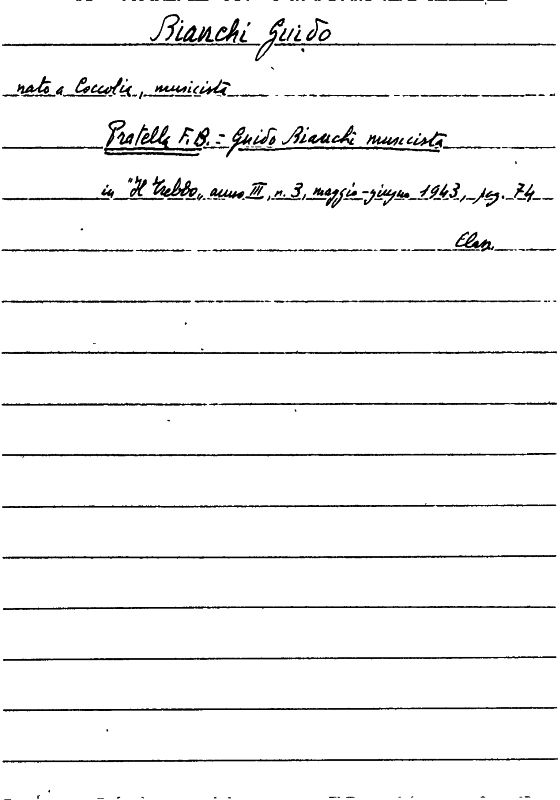 Bianchi Guido
nato a Coccolia, musicista
Pratella F.B. = Guido Bianchi musicista
in "Il Trebbo„ anno III, n. 3, maggio-giugno 1943, pag. 74